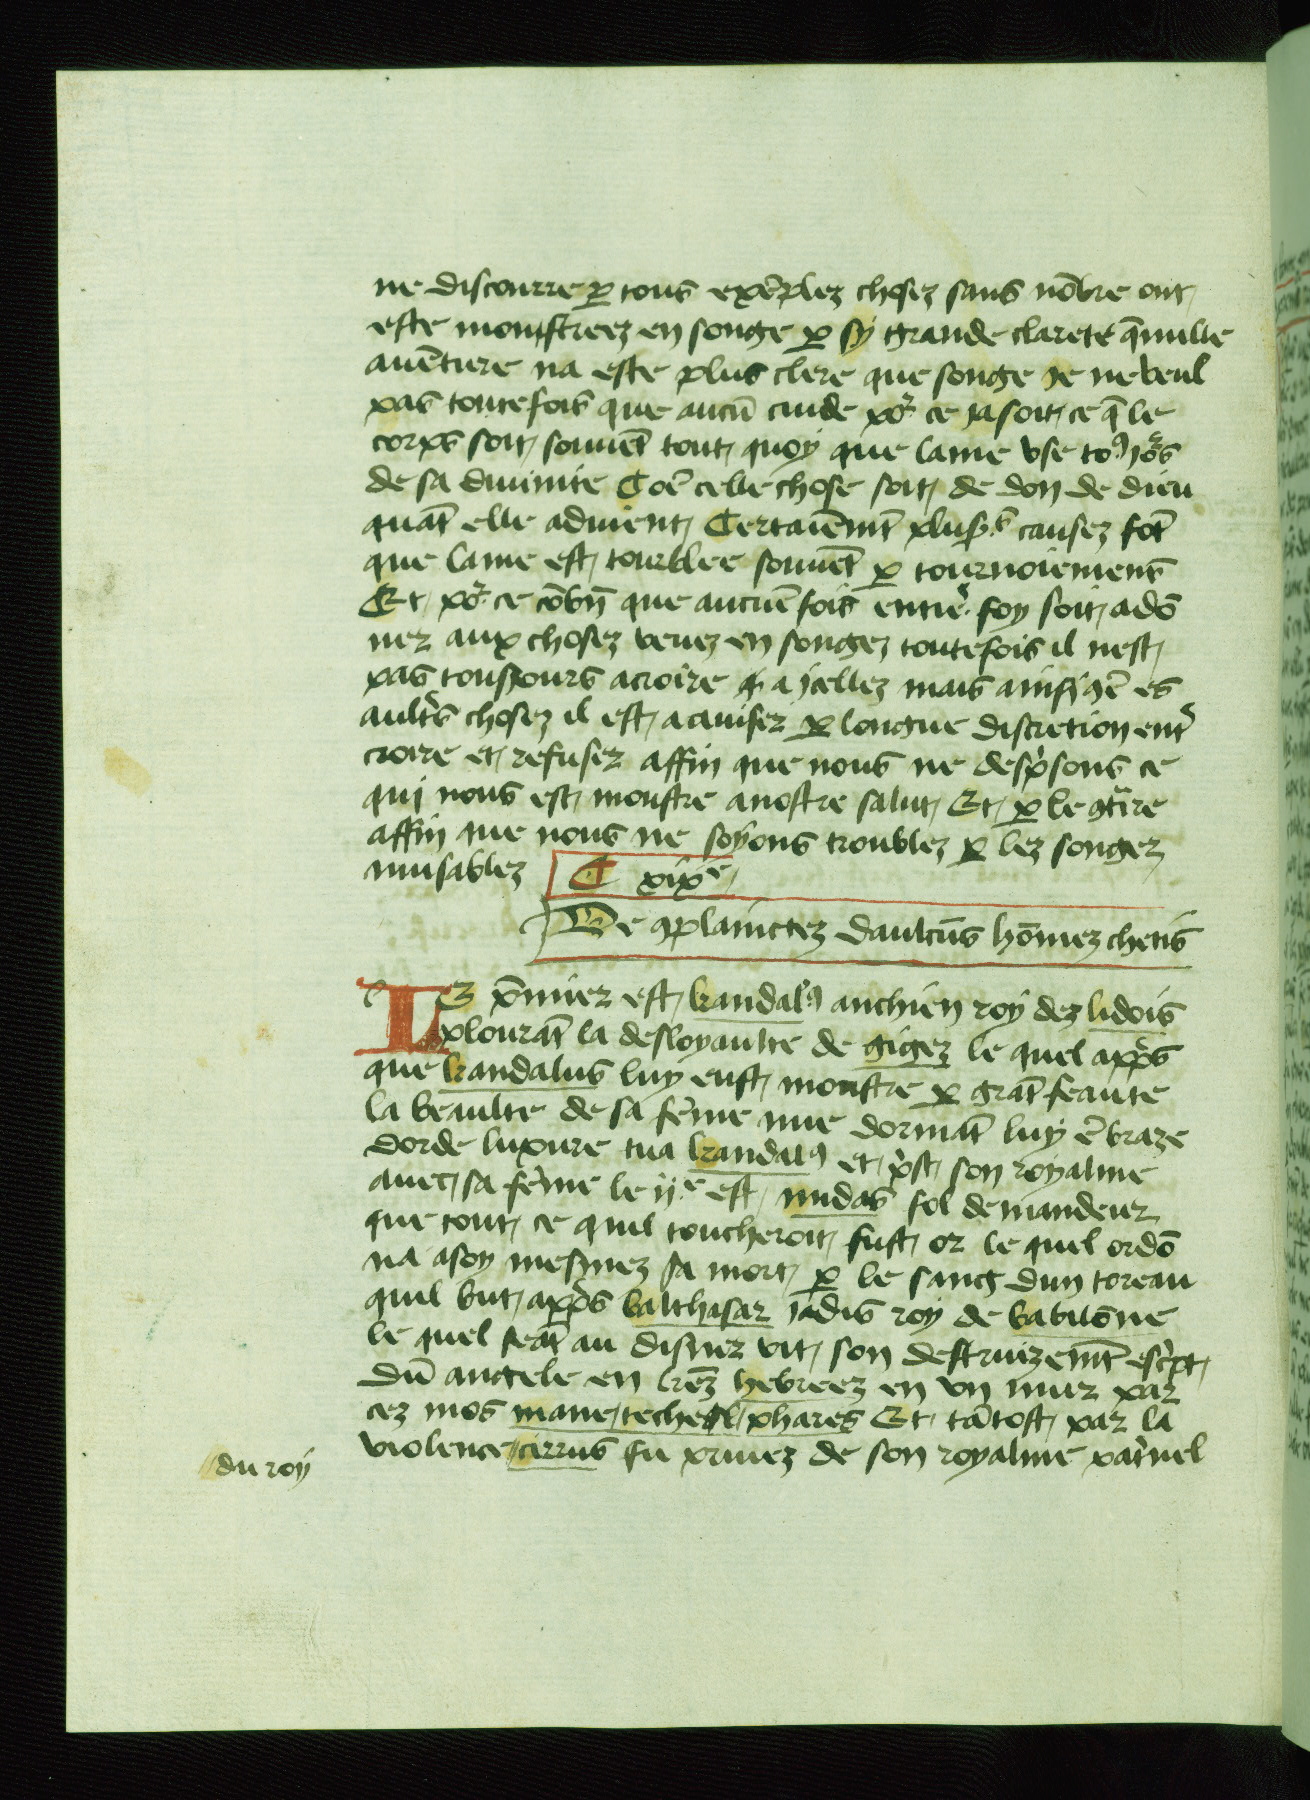 ne discourre ꝑ tous exẽplez chosez sans nõbre ont
este monstreez en songe ꝑ sy grande clarete q̃ nulle
auẽture na este plus clere que songe Je ne veul
pas toutefois que aucũ cuide poʳ ce ja soit ce q̃ le
corps soit souuẽt tout quoy que lame vse toꝰ joʳs
de sa diuinite Coẽ celle chose soit de don de dieu
quãt elle aduient Certaiẽmt̃ plusʳˢ causez sõt
que lame est tourblee souuẽt ꝑ tournoiemens
Et poʳ ce cõbñ que aucuẽ fois entieʳ foy soit adõ
nez aux chosez veuez en songez toutefois il nest
pas tousjours acroire a jcellez mais ainsi q̃ es
aultʳs chosez il est a aduiser ꝑ longue discretion entʳ
croire et refuser affin que nous ne despʳsons ce
qui nous est monstre a nostre salut Et ꝑ le ꝯtʳire
affin que nous ne soyons troublez ꝑ lez songez
muisablez C xixᵉ
De ꝯplainctez daultũs hõmez chetis
LE pʳmier est kandalꝰ anchien roy dez lidois
plourãt la desloyaulte de gigez le quel appʳs
que kandalus luy eust monstre ꝑ grãt feaute
la beaulte de sa fẽme nue dormãt luy ẽbraze
dorde luxure tua kandalꝰ et pʳst son royalme
auec sa fẽme le ijᵉ est midas fol demandeur
que tout ce quil toucheroit fust or le quel ordõ
na a soy mesmez sa mort ꝑ le sang dun toreau
quil but appʳs balthasar jadis roy de babilõne
le quel seãt au disner vit son destruizemt̃ escʳipt
dũ angele en lrẽz hebreez en vn mur par
cez mos mane techel phares Et tãtost par la
violence // cirrus fu priuez de son royalme patʳnel
// du roy